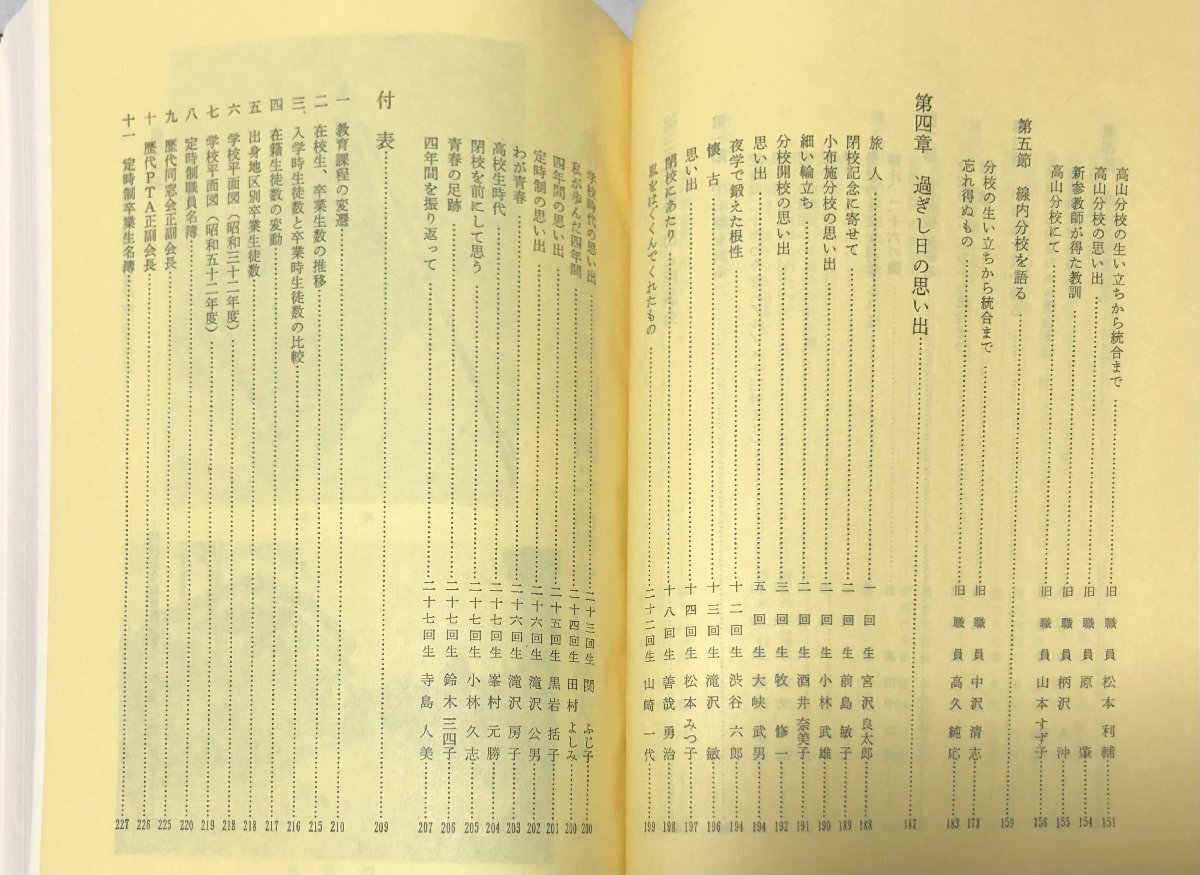 高山分校の生い立ちから統合まで……旧職員 松本利輔……151
高山分校の思い出……旧職員 原 肇……154
新参教師が得た教訓……旧職員 柄沢 沖……155
高山分校にて……旧職員 山本すず子……156
第五節 線内分校を語る……159
分校の生い立ちから統合まで……旧職員 中沢清志……178
忘れ得ぬもの……旧職員 高久純応……183
第四章 過ぎし日の思い出……187
旅人……一回生 宮沢良太郎……188
閉校記念に寄せて……二回生 前島敏子……189
小布施分校の思い出……二回生 小林武雄……190
細い輪立ち……二回生 酒井奈美子……191
分校開校の思い出……三回生 牧 修一……192
思い出……五回生 大峡武男……194
夜学で鍛えた根性……十二回生 渋谷六郎……194
懐古……十三回生 滝沢 敏……196
思い出……十四回生 松本みつ子……197
閉校にあたり……十八回生 善哉勇治……198
私をはぐくんでくれたもの……二十二回生 山崎一代……199
学校時代の思い出……二十三回生 関 ふじ子……200
私が歩んだ四年間……二十四回生 田村よしみ……200
四年間の思い出……二十五回生 黒岩括子……201
定時制の思い出……二十六回生 滝沢公男……202
わが青春……二十六回生 滝沢房子……203
高校生時代……二十七回生 峯村元勝……204
閉校を前にして思う……二十七回生 小林久志……205
青春の足跡……二十七回生 鈴木三四子……206
四年間を振り返って……二十七回生 寺島人美……207
付表……209
一 教育課程の変遷……210
二 在校生、卒業生数の推移……215
三 入学時生徒数と卒業時生徒数の比較……216
四 在籍生徒数の変動……217
五 出身地区別卒業生徒数……218
六 学校平面図(昭和三十二年度)……218
七 学校平面図(昭和五十二年度)……219
八 定時制職員名簿……220
九 歴代同窓会正副会長……225
十 歴代PTA正副会長……226
十一 定時制卒業生名簿……227